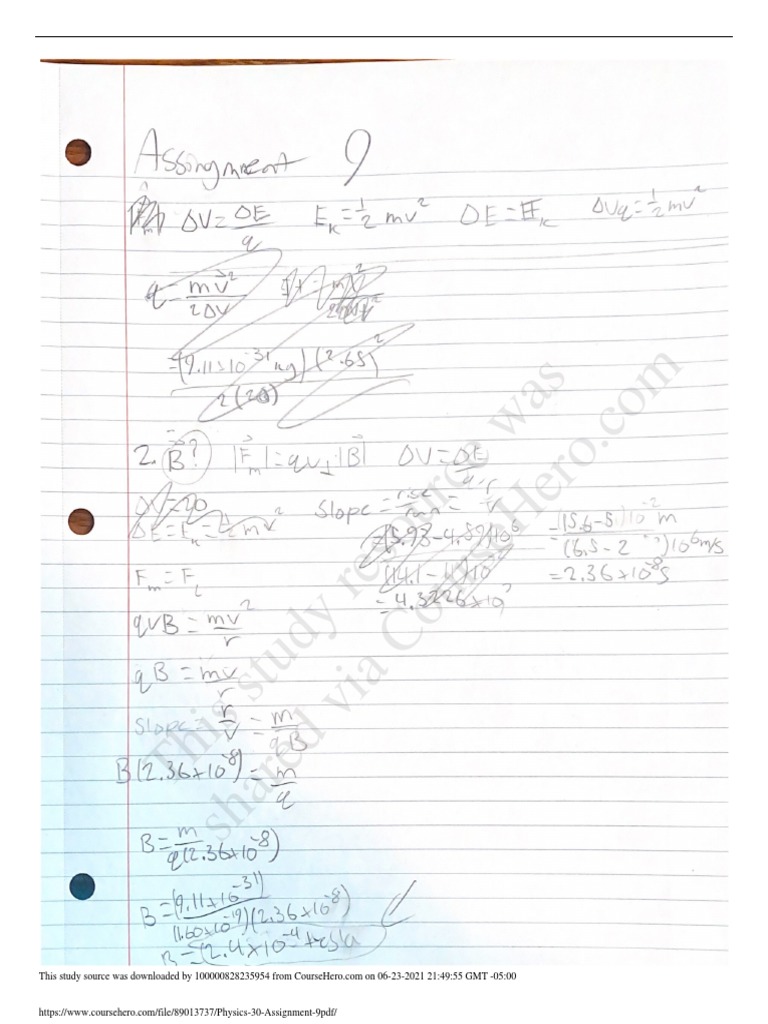 Assingment 9
ΔV = ΔE/q   E_K = 1/2 mv²   ΔE = E_K   ΔVq = 1/2 mv²
q = mv²/2ΔV
= (9.11×10^-31 kg)(2.65)²
2(20)
2. B?   |F_m| = qv⊥|B|   ΔV = ΔE/q
ΔV = 20   Slope = rise/run = r/v
ΔE = E_K = 1/2 mv²   = (5.93 - 4.59)10^6   = (15.6 - 5. )10^-2 m
(14.1 - 11)10   (6.5 - 2 )10^6 m/s
F_m = F_c   = 4.3226×10^7   = 2.36×10^-8 s
qvB = mv²/r
qB = mv/r
Slope = r/v = m/qB
B(2.36×10^-8) = m/q
B = m/q(2.36×10^-8)
B = (9.11×10^-31)/(1.60×10^-19)(2.36×10^-8)
B = 2.4×10^-4 tesla
This study resource was
shared via CourseHero.com
This study source was downloaded by 100000828235954 from CourseHero.com on 06-23-2021 21:49:55 GMT -05:00
https://www.coursehero.com/file/89013737/Physics-30-Assignment-9pdf/